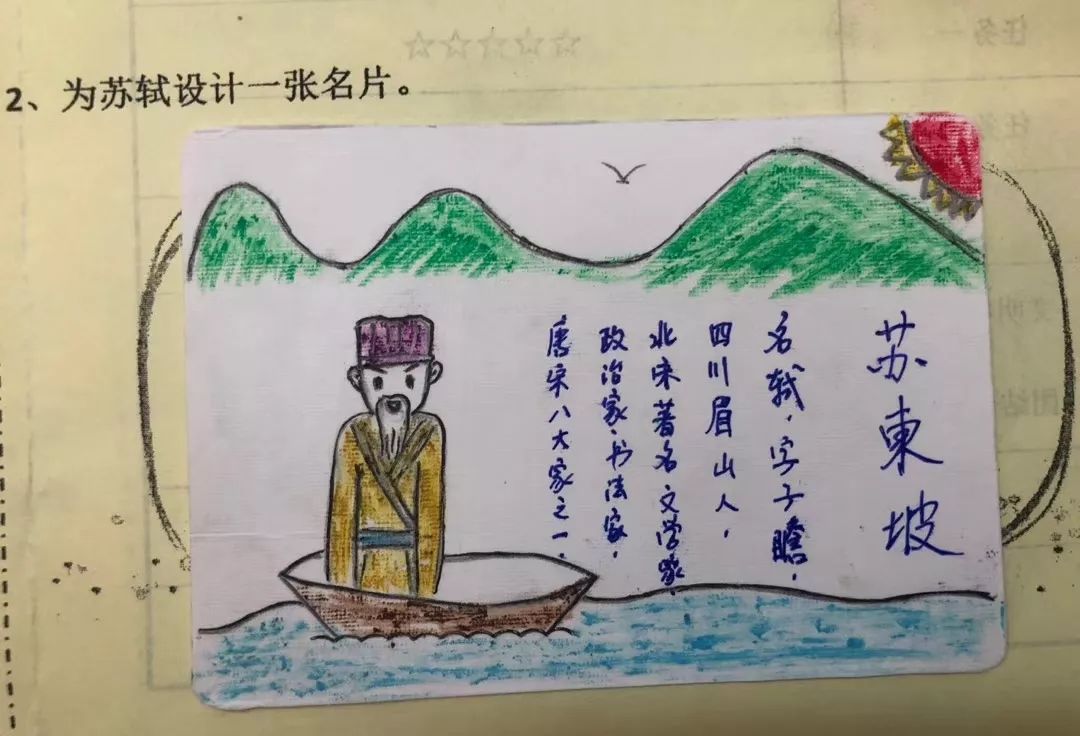 2、为苏轼设计一张名片。
苏東坡
名轼，字子瞻，
四川眉山人，
北宋著名文学家、
政治家、书法家，
唐宋八大家之一．